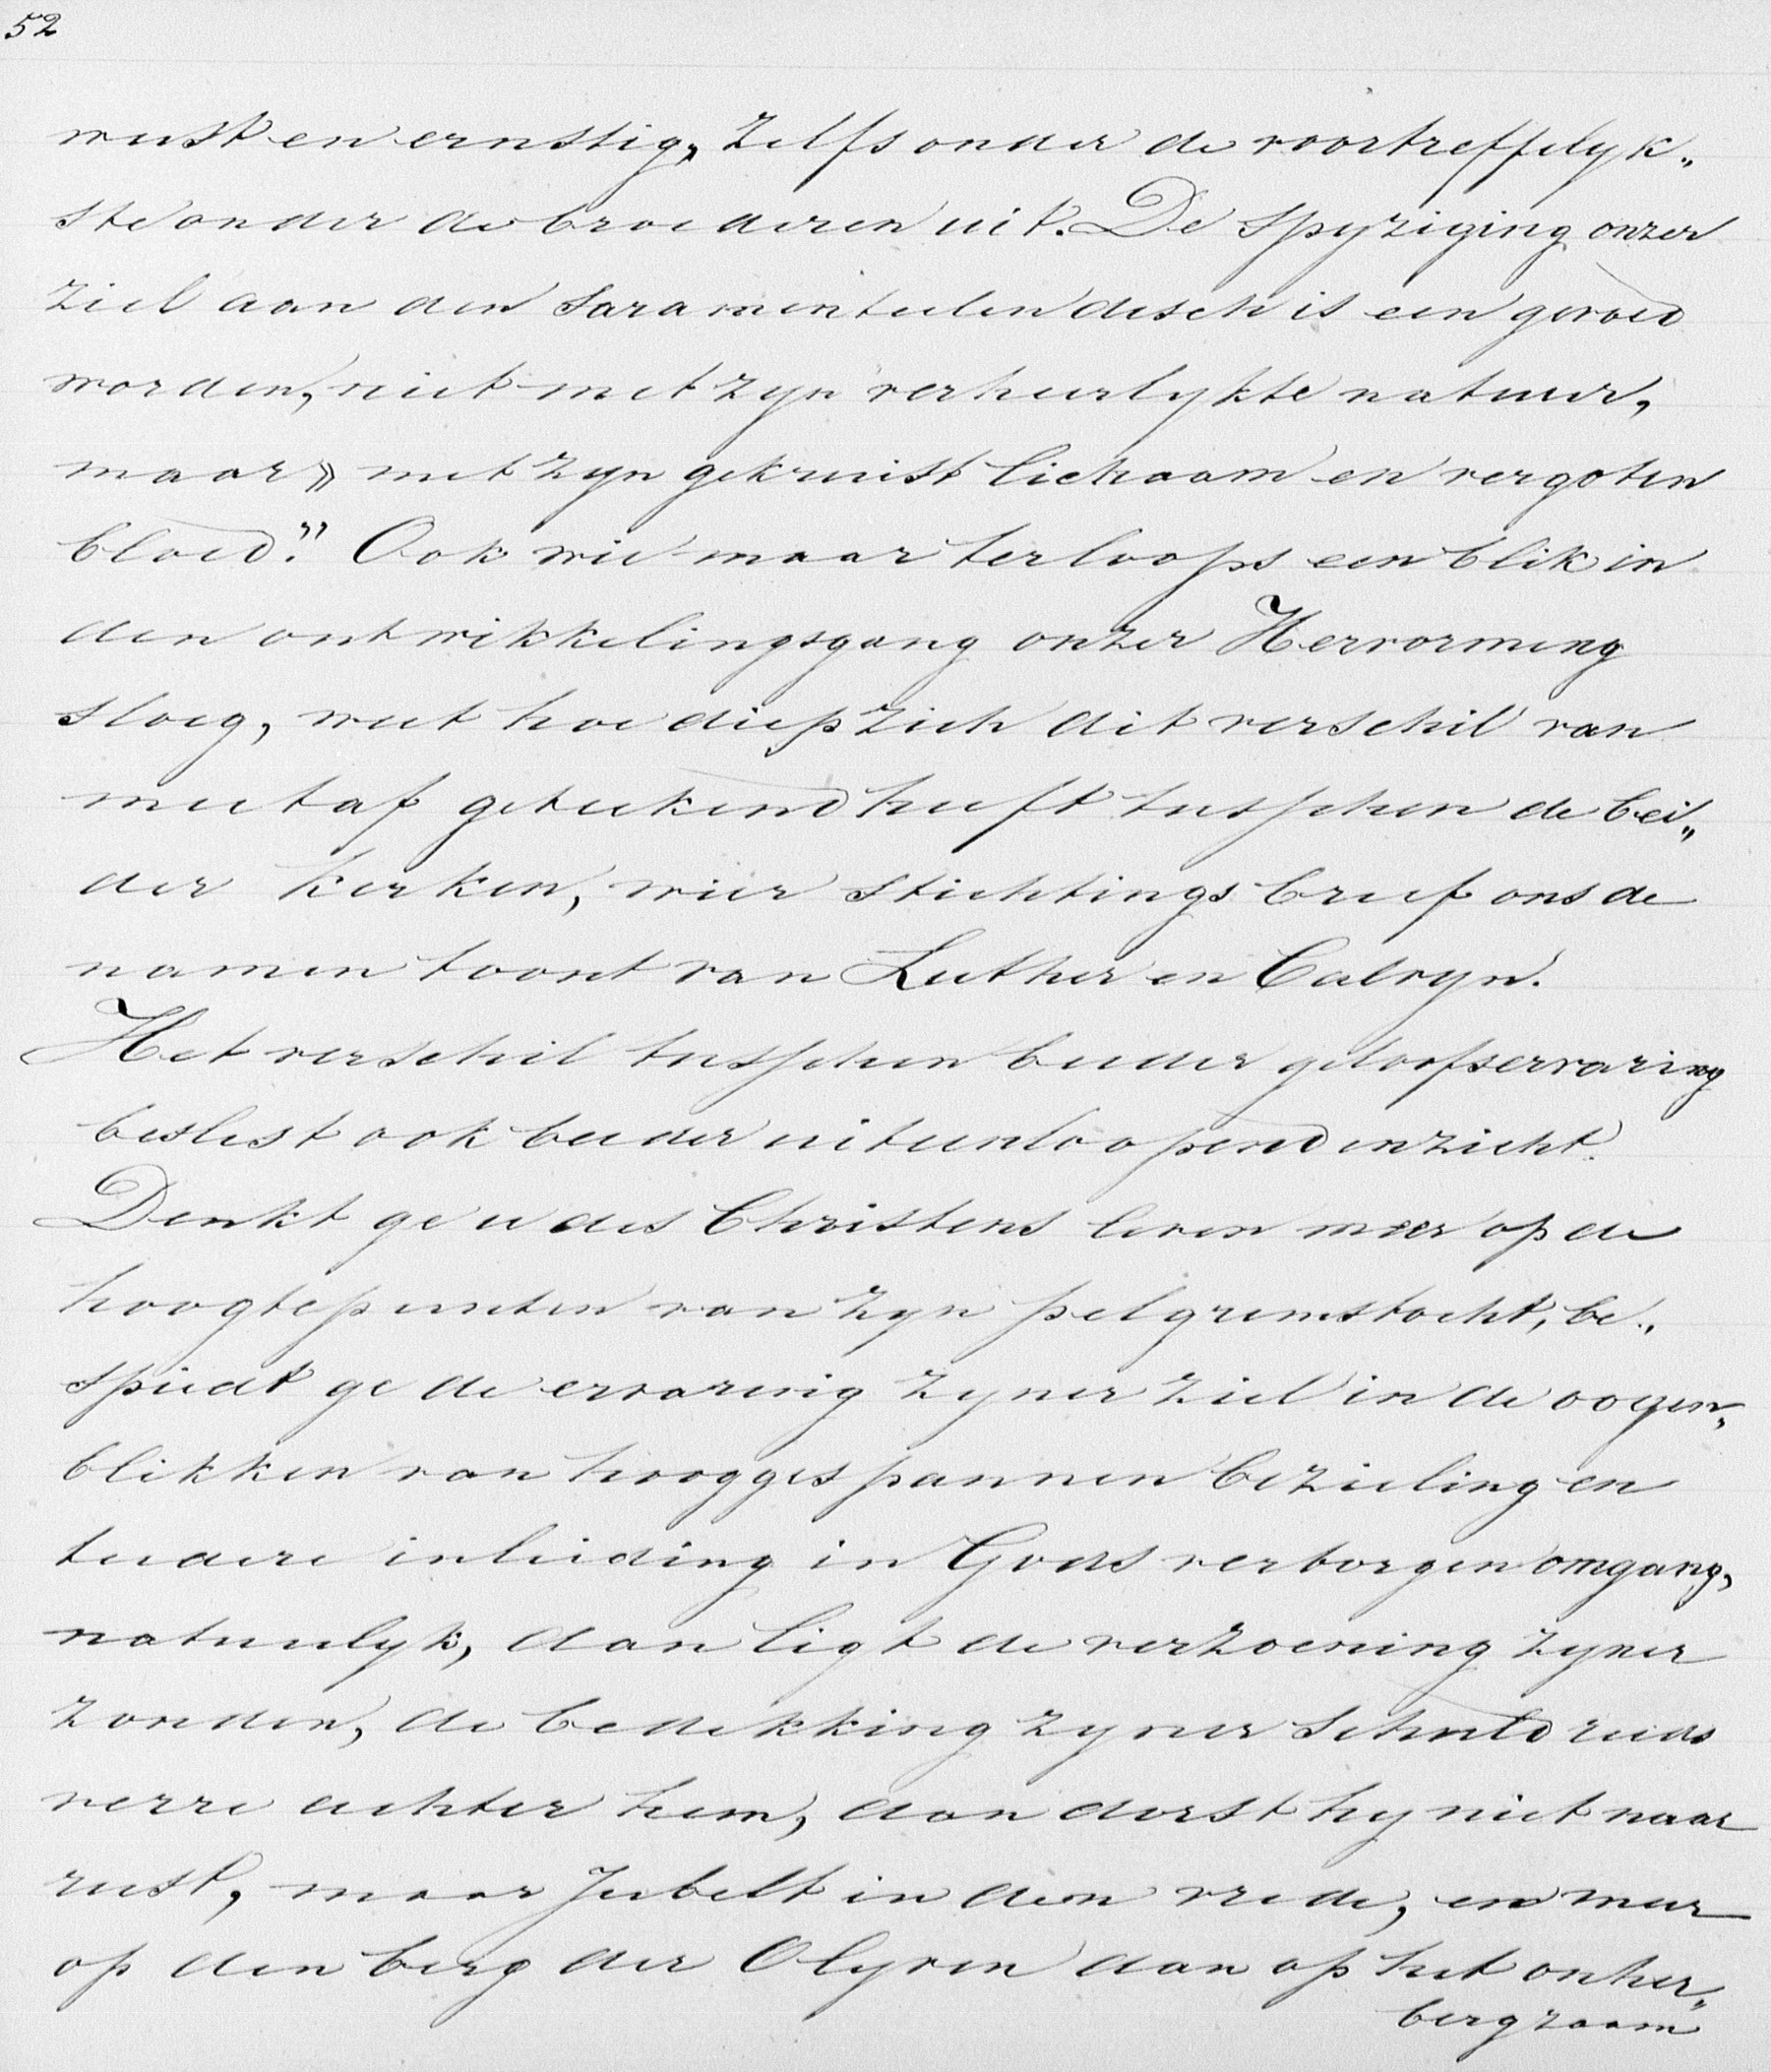 52
wust en ernstig, zelfs onder de voortreffelyk„
ste onder de broederen uit. De spyziging onzer
ziel aan den Saramenteelen disch is een gevoed
worden, niet met zyn verheerlykte natuur,
maar „ met zyn gekruist lichaam en vergoten
bloed.” Ook wie maar terloops een blik in
den ontwikkelingsgang onzer Hervorming
sloeg, weet hoe diep zich dit verschil van
meetaf geteekend heeft tusschen de bei„
der kerken, wier stichtingsbrief ons de
namen toont van Luther en Calvyn.
Het verschil tusschen beider geloofservaring
beslist ook beider uiteenloopend inzicht.
Denkt ge u des Christens leven meer op de
hoogtepunten van zyn pelgrimstocht, be„
spiedt ge de ervaring zyner ziel in de oogen„
blikken van hooggespannen bezieling en
teedere inleiding in Gods verborgen omgang,
natuurlyk, dan ligt de verzoening zyner
zonden, de bedekking zyner schuld reeds
verre achter hem, dan dorst hy niet naar
rust, maar jubelt in den vrede, en meer
op den berg der Olyven dan op het onher„
bergzaam